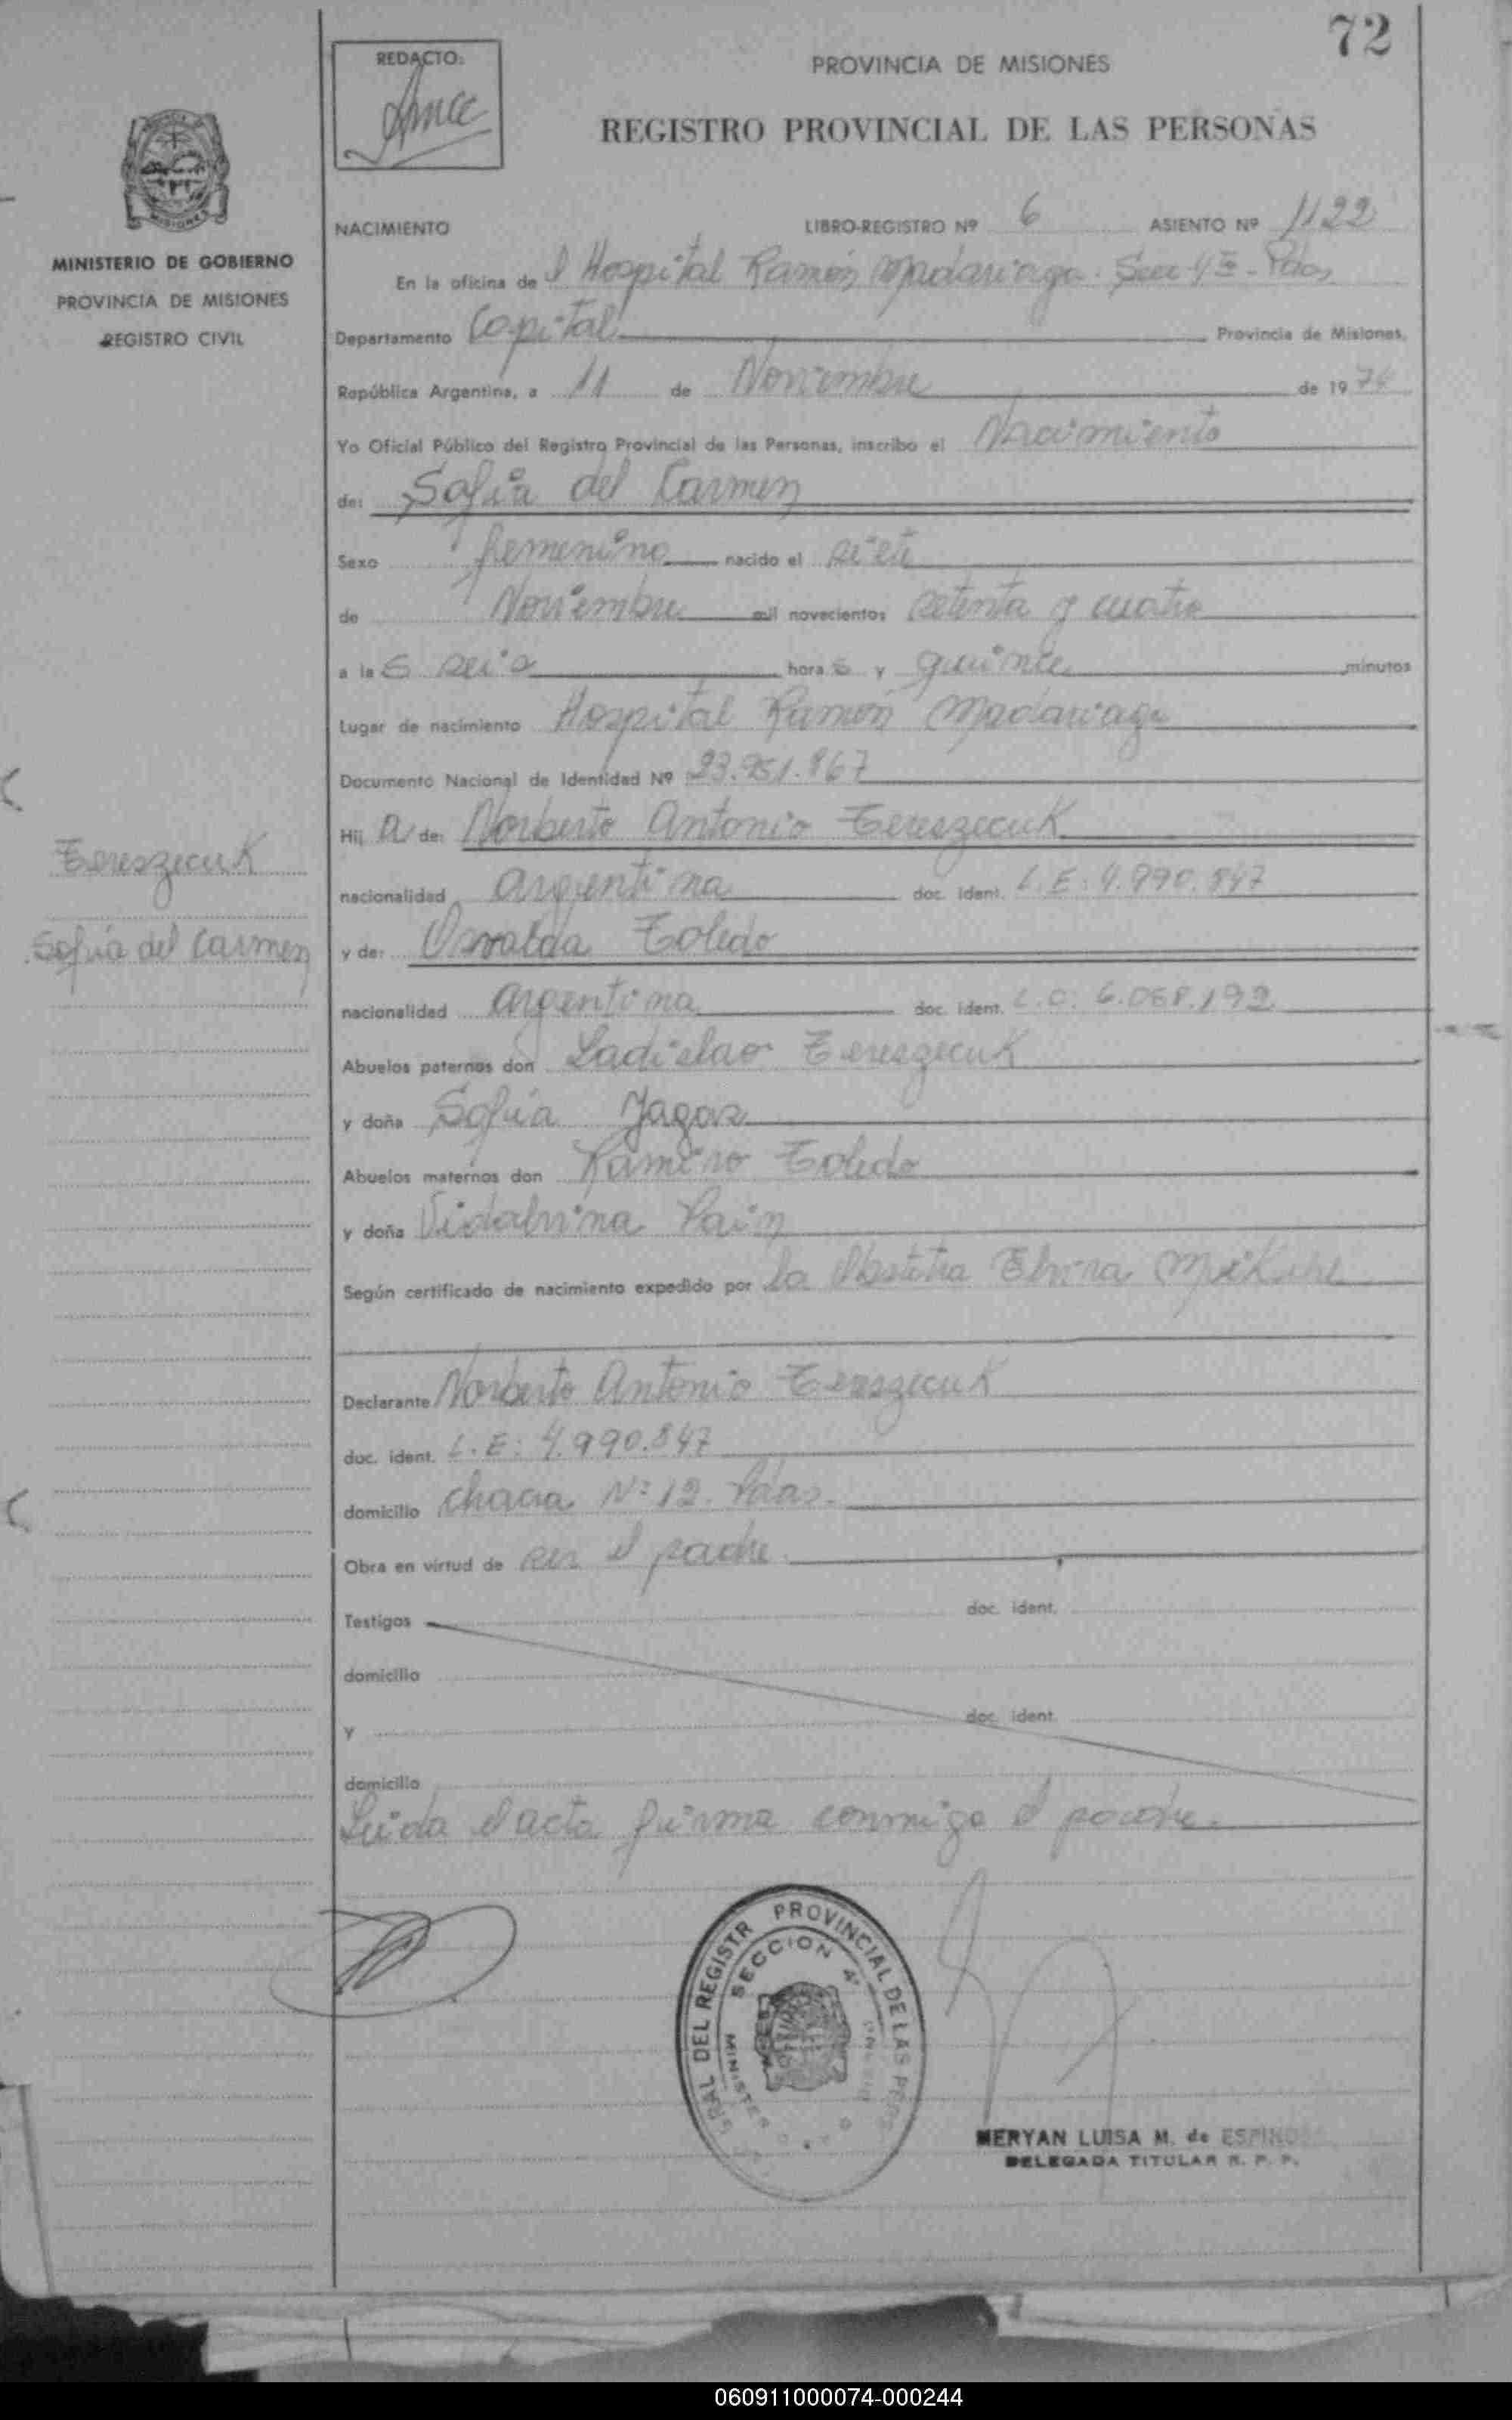 72
REDACTO:
PROVINCIA DE MISIONES
REGISTRO PROVINCIAL DE LAS PERSONAS
MISIONES
MINISTERIO DE GOBIERNO
PROVINCIA DE MISIONES
REGISTRO CIVIL
NACIMIENTO LIBRO-REGISTRO Nº 6 ASIENTO Nº 1122
En la oficina de l Hospital Ramón Madariaga. Secc 4ª - Pdas
Departamento Capital Provincia de Misiones,
República Argentina, a 11 de Noviembre de 1974
Yo Oficial Público del Registro Provincial de las Personas, inscribo el Nacimiento
de: Sofía del Carmen
Sexo femenino nacido el siete
de Noviembre mil novecientos setenta y cuatro
a las seis horas y quince minutos
Lugar de nacimiento Hospital Ramón Madariaga
Documento Nacional de Identidad Nº 23.951.867
Hij a de: Norberto Antonio Tereszecuk
Tereszecuk
nacionalidad argentina doc. ident. L.E: 4.990.847
Sofía del Carmen
y de: Osvalda Toledo
nacionalidad argentina doc. ident. L.C: 6.068.192
Abuelos paternos don Ladislao Tereszecuk
y doña Sofía Jagas
Abuelos maternos don Ramiro Toledo
y doña Vidalvina
Según certificado de nacimiento expedido por la Obstetra Elvira
Declarante Norberto Antonio Tereszecuk
doc. ident. L.E: 4.990.847
domicilio chacra Nº 12. Pdas.
Obra en virtud de ser el padre.
Testigos doc. ident.
domicilio
y doc. ident.
domicilio
Leída el acta firma conmigo el padre.
DEL REGISTR PROVINCIAL DE LAS PERS
SECCION 4ª
MERYAN LUISA M. de ESPINO
DELEGADA TITULAR R. P. P.
060911000074-000244